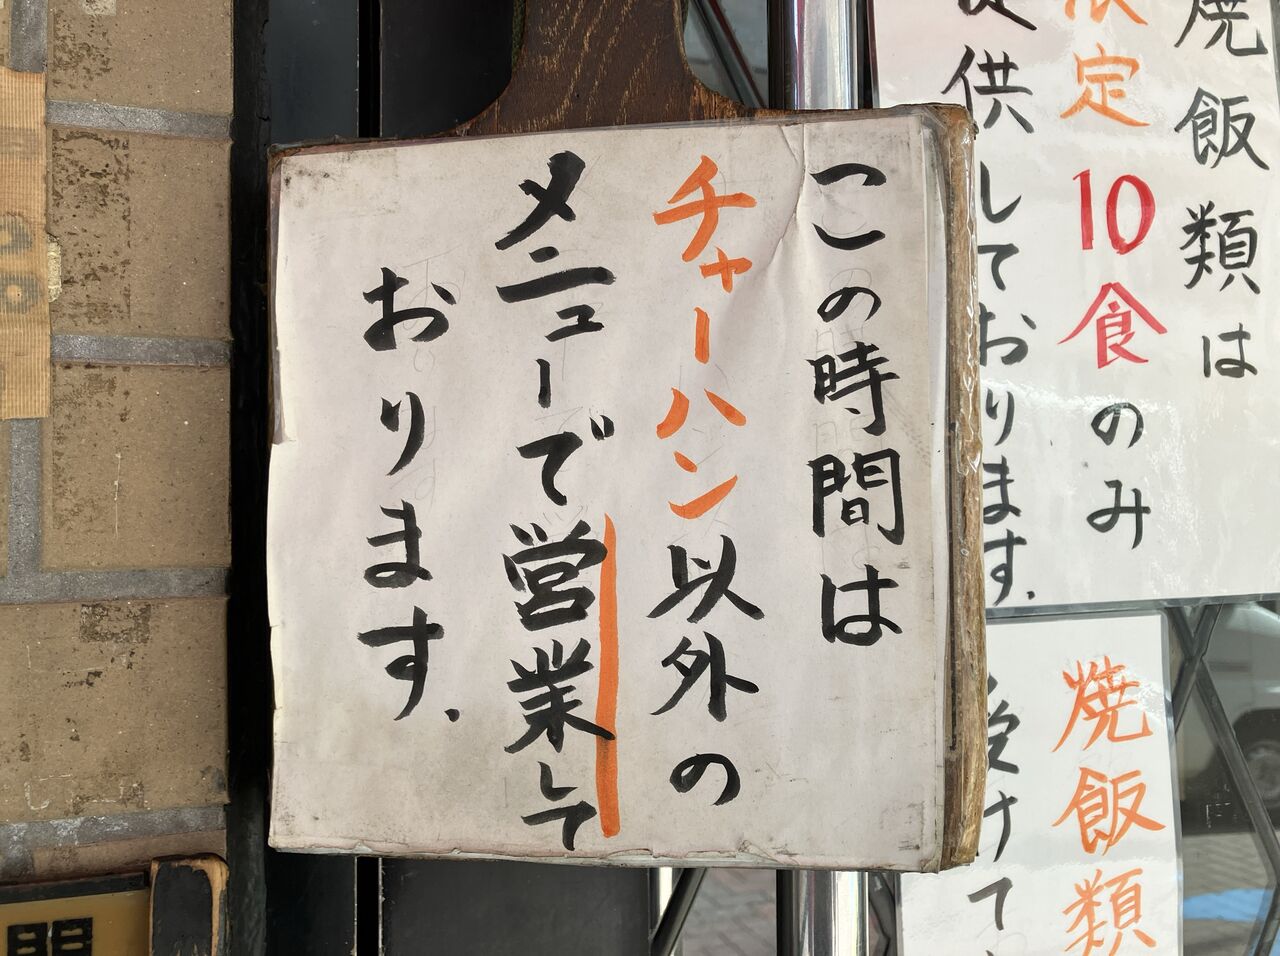 この時間は
チャーハン以外の
メニューで営業して
おります.
焼飯類は
限定10食のみ
提供しております.
焼飯類
受けて